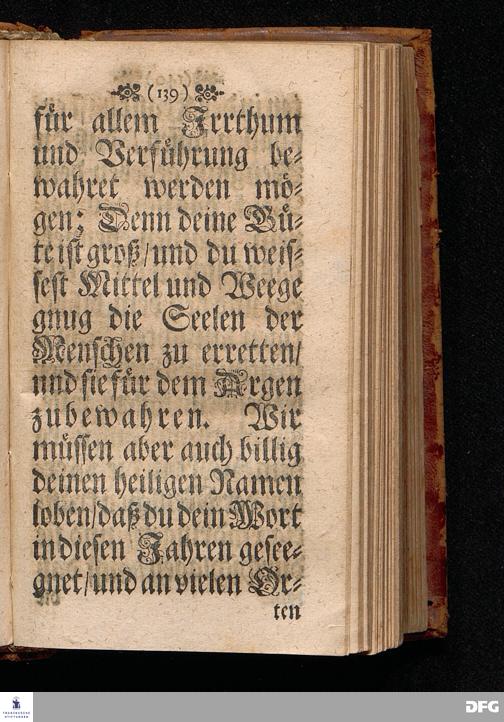 (139)
fuͤr allem Irrthum
und Verfuͤhrung be⸗
wahret werden moͤ⸗
gen; Denn deine Guͤ⸗
te ist groß/und du weis⸗
sest Mittel und Weege
gnug die Seelen der
Menschen zu erretten/
und sie fuͤr dem Argen
zubewahren. Wir
muͤssen aber auch billig
deinen heiligen Namen
loben/daß du dein Wort
in diesen Jahren gesee⸗
gnet/und an vielen Or⸗
ten
FRANCKESCHE
STIFTUNGEN
DFG